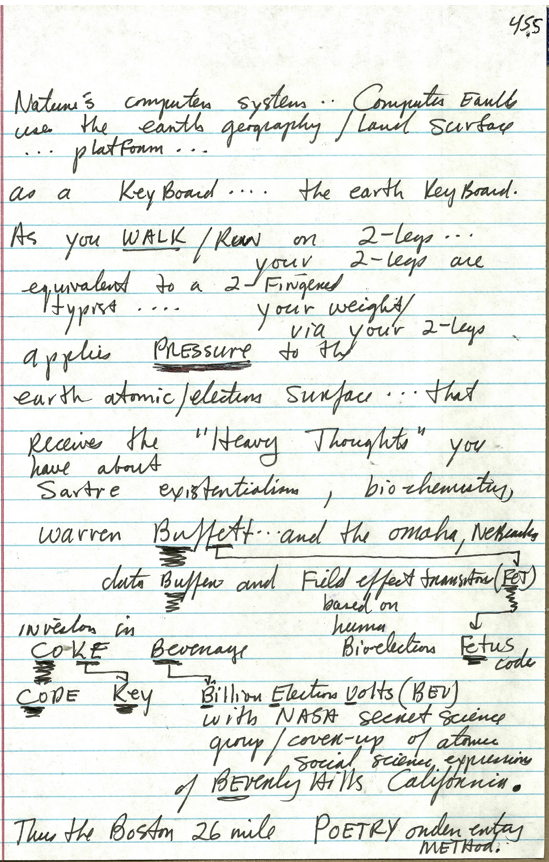 455
Nature's computer system .. Computer Earth
uses the earth geography / land surface
... platform ...
as a KeyBoard .... the earth KeyBoard.
As you WALK / Run on 2-legs ...
your 2-legs are
equivalent to a 2-Fingered
typist .... your weight/
via your 2-legs
applies PRESSURE to the
earth atomic/electron surface ... that
receives the "Heavy Thoughts" you
have about
Sartre existentialism, bio-chemistry,
Warren Buffett...and the omaha, Nebraska
data Buffers and Field effect transistor (FET)
based on
human
investor in
COKE Beverage Bioelectron Fetus
code
CODE Key Billion Electron Volts (BEV)
with NASA secret science
group/cover-up of atomic
social science, expressions
of BEVerly Hills California.
Thus the Boston 26 mile POETRY order entry
METHOD.